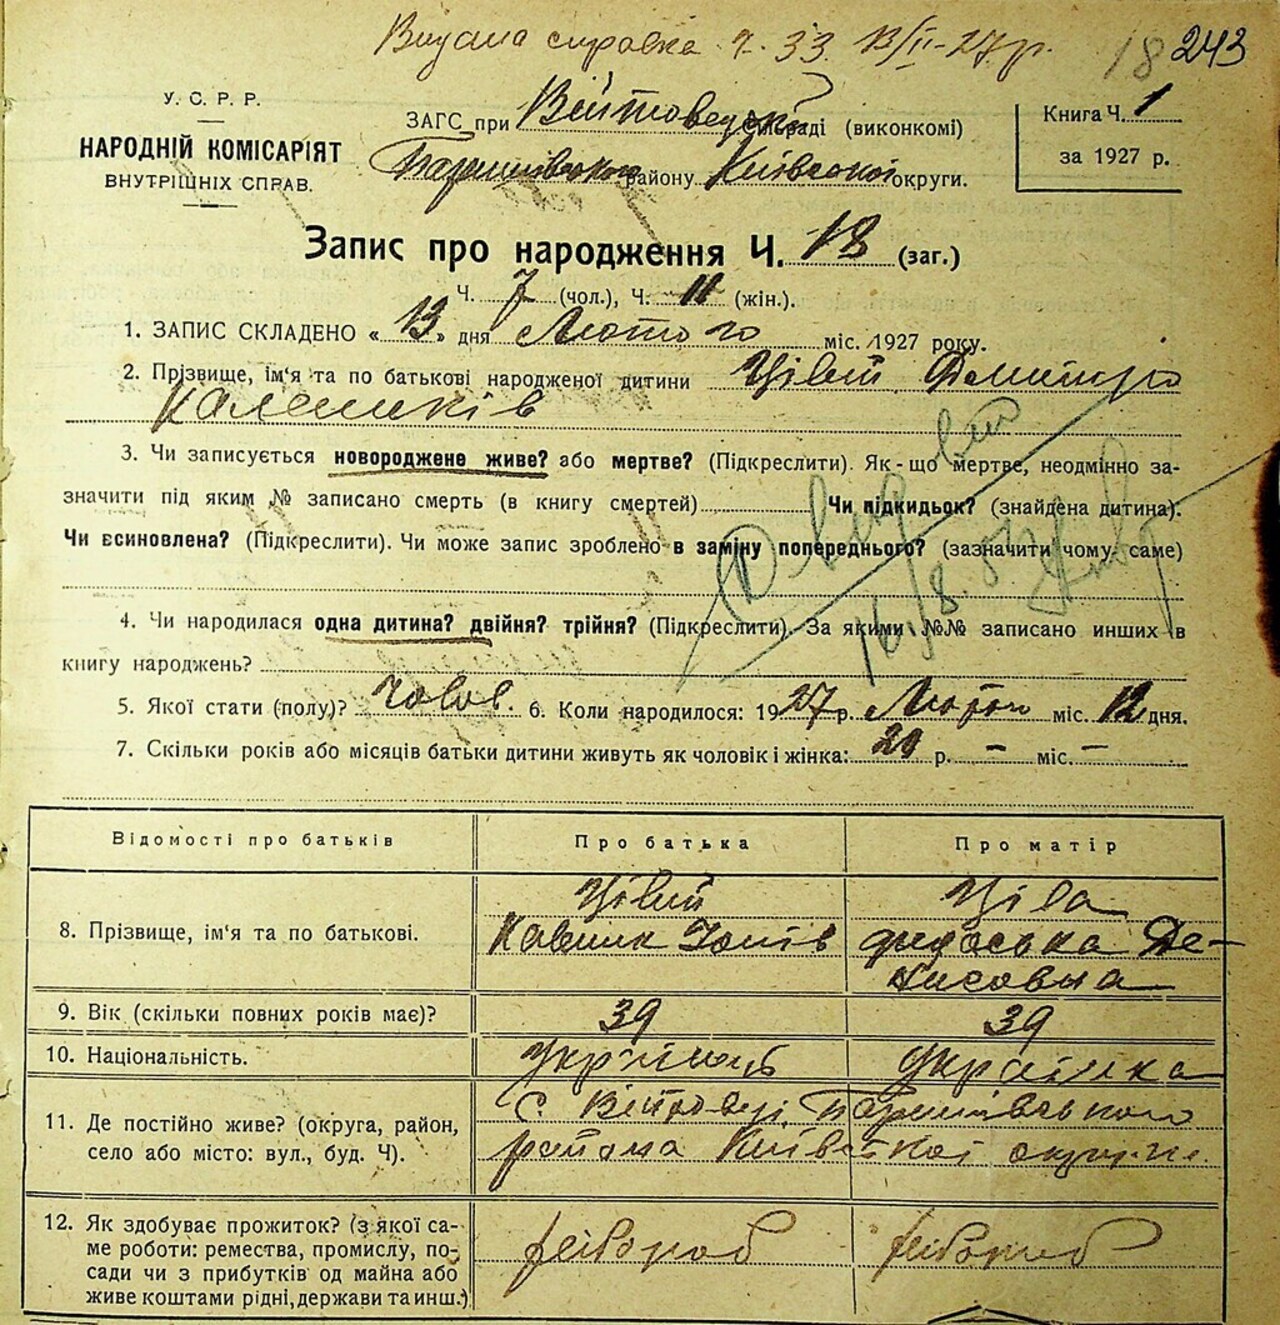 Видана справка ч. 33 13/II-27 р. 18 243
У. С. Р. Р.
НАРОДНІЙ КОМІСАРІЯТ
ВНУТРІШНІХ СПРАВ.
ЗАГС при Війтовецькій сільраді (виконкомі)
Баришівського району Київської округи.
Книга Ч. 1
за 1927 р.
Запис про народження Ч. 18 (заг.)
Ч. 7 (чол.), Ч. 11 (жін.).
1. ЗАПИС СКЛАДЕНО « 13 » дня Лютого міс. 1927 року.
2. Прізвище, ім'я та по батькові народженої дитини Цівий Демитро
Калеників
3. Чи записується новороджене живе? або мертве? (Підкреслити). Як-що мертве, неодмінно за-
значити під яким № записано смерть (в книгу смертей) Чи підкидьок? (знайдена дитина).
Чи єсиновлена? (Підкреслити). Чи може запис зроблено в заміну попереднього? (зазначити чому саме)
4. Чи народилася одна дитина? двійня? трійня? (Підкреслити). За якими №№ записано инших в
книгу народжень?
5. Якої стати (полу)? чолов. 6. Коли народилося: 1927 р. Лютого міс. 12 дня.
7. Скільки років або місяців батьки дитини живуть як чоловік і жінка: 20 р. – міс. –
Відомості про батьків Про батька Про матір
8. Прізвище, ім'я та по батькові. Цівий Ціва
Каленик Йосипів Федоська Де-
нисовна
9. Вік (скільки повних років має)? 39 39
10. Національність. Українець Українка
11. Де постійно живе? (округа, район,
село або місто: вул., буд. Ч). с. Війтовці, Баришівського
района Київської округи.
12. Як здобуває прожиток? (з якої са-
ме роботи: ремества, промислу, по-
сади чи з прибутків од майна або
живе коштами рідні, держави та инш.) хлібороб хлібороб